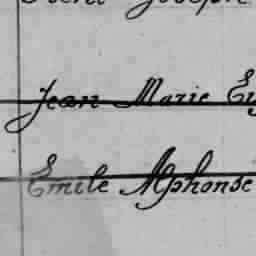 René Joseph
Jean Marie Ey
Emile Alphonse